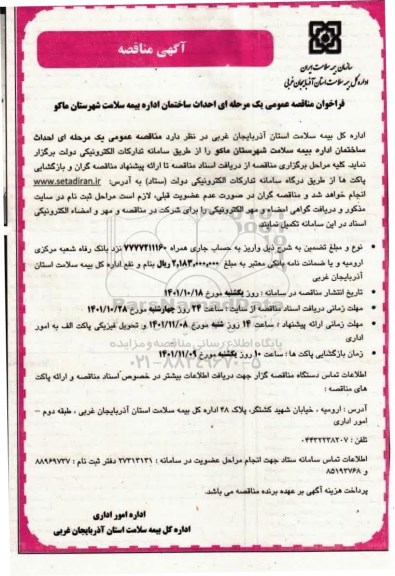 آگهی مناقصه
سازمان بیمه سلامت ایران
اداره کل بیمه سلامت استان آذربایجان غربی
فراخوان مناقصه عمومی یک مرحله ای احداث ساختمان اداره بیمه سلامت شهرستان ماکو
اداره کل بیمه سلامت استان آذربایجان غربی در نظر دارد مناقصه عمومی یک مرحله ای احداث
ساختمان اداره بیمه سلامت شهرستان ماکو را از طریق سامانه تدارکات الکترونیکی دولت برگزار
نماید. کلیه مراحل برگزاری مناقصه از دریافت اسناد مناقصه تا ارائه پیشنهاد مناقصه گران و بازگشایی
پاکت ها از طریق درگاه سامانه تدارکات الکترونیکی دولت (ستاد) به آدرس: www.setadiran.ir
انجام خواهد شد و مناقصه گران در صورت عدم عضویت قبلی، لازم است مراحل ثبت نام در سایت
مذکور و دریافت گواهی امضاء و مهر الکترونیکی را برای شرکت در مناقصه و مهر و امضاء الکترونیکی
اسناد در این سامانه تکمیل نمایند.
نوع و مبلغ تضمین به شرح ذیل واریز به حساب جاری همراه ۷۷۷۷۳۱۱۱۶۰ نزد بانک رفاه شعبه مرکزی
ارومیه و یا ضمانت نامه بانکی معتبر به مبلغ ۲,۱۸۳,۰۰۰,۰۰۰ ریال بنام و نفع اداره کل بیمه سلامت استان
آذربایجان غربی
تاریخ انتشار مناقصه در سامانه : روز یکشنبه مورخ ۱۴۰۱/۱۰/۱۸
مهلت زمانی دریافت اسناد مناقصه از سایت: ساعت ۲۴ روز چهارشنبه مورخ ۱۴۰۱/۱۰/۲۸
مهلت زمانی ارائه پیشنهاد : ساعت ۱۴ روز شنبه مورخ ۱۴۰۱/۱۱/۰۸ و تحویل فیزیکی پاکت الف به امور
اداری
زمان بازگشایی پاکت ها : ساعت ۱۰ روز یکشنبه مورخ ۱۴۰۱/۱۱/۰۹
ParsNamadData
پایگاه اطلاع رسانی مناقصه و مزایده
۰۲۱-۸۸۳۴۹۶۷۰-۵
اطلاعات تماس دستگاه مناقصه گزار جهت دریافت اطلاعات بیشتر در خصوص اسناد مناقصه و ارائه پاکت
های مناقصه :
آدرس : ارومیه ، خیابان شهید کلشنگر، پلاک ۴۸ اداره کل بیمه سلامت استان آذربایجان غربی ، طبقه دوم –
امور اداری
تلفن : ۰۴۴۳۲۲۳۸۲۰۷
اطلاعات تماس سامانه ستاد جهت انجام مراحل عضویت در سامانه : ۲۷۳۱۳۱۳۱ دفتر ثبت نام : ۸۸۹۶۹۷۳۷
و ۸۵۱۹۳۷۶۸
پرداخت هزینه آگهی بر عهده برنده مناقصه می باشد.
اداره امور اداری
اداره کل بیمه سلامت استان آذربایجان غربی